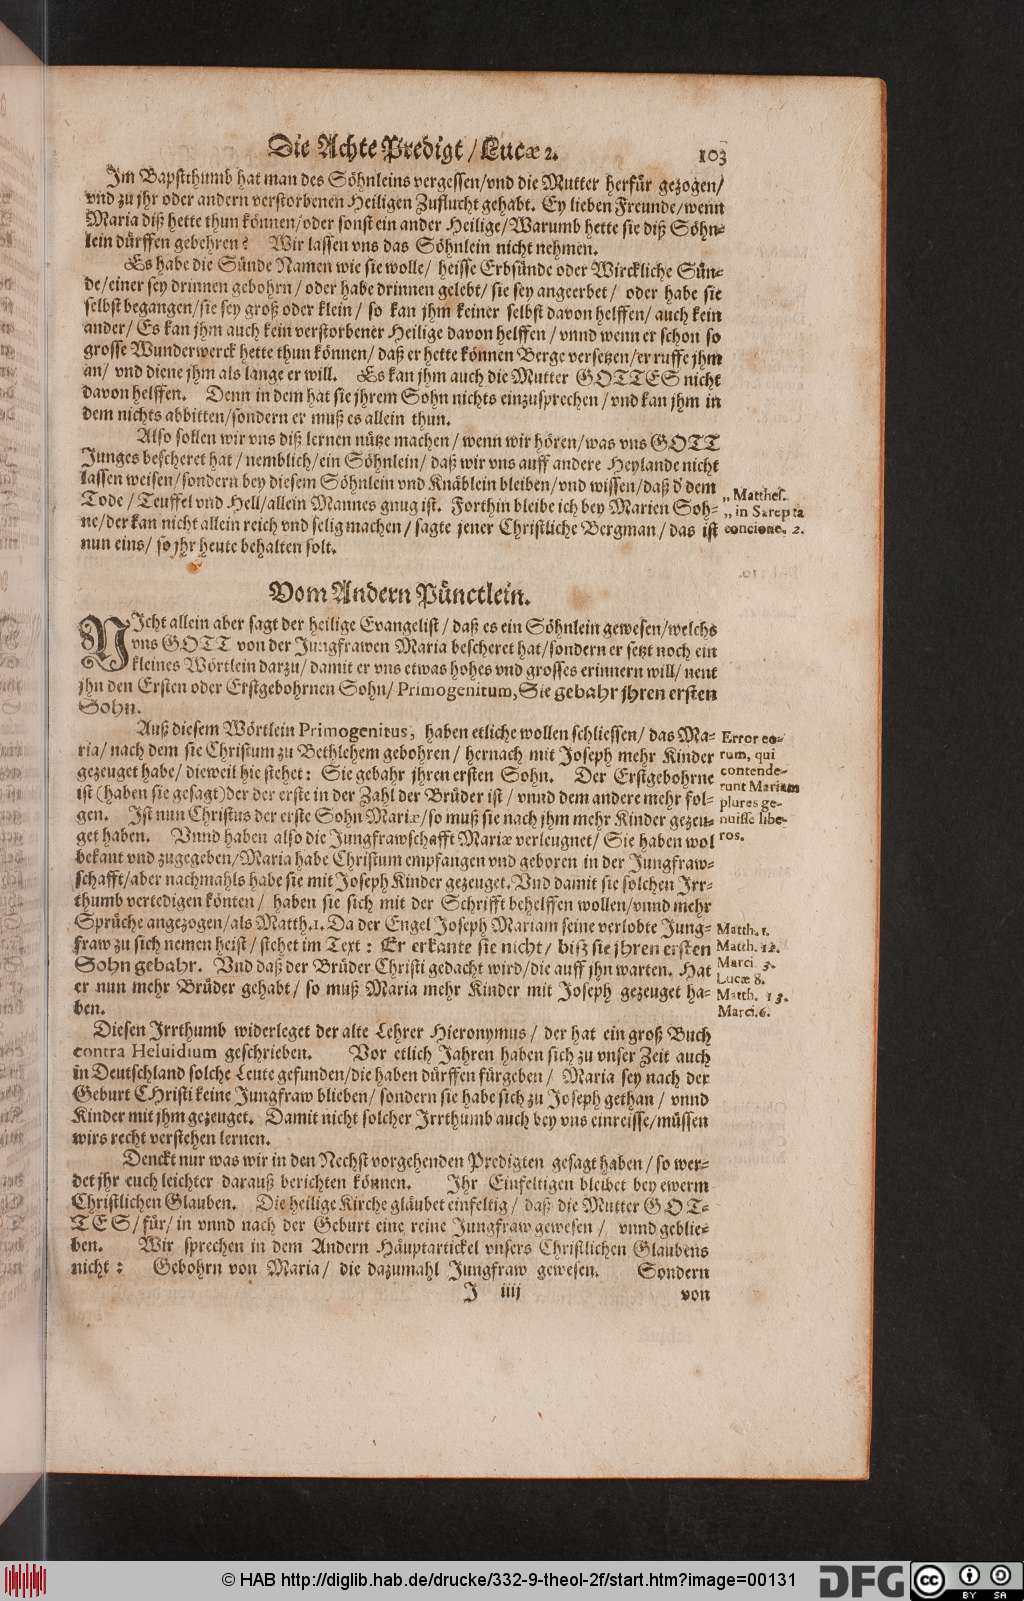 Die Achte Predigt / Lucæ 2. 103
Im Bapstthumb hat man des Söhnleins vergessen/vnd die Mutter herfür gezogen/
vnd zu jhr oder andern verstorbenen Heiligen Zuflucht gehabt. Ey lieben Freunde/wenn
Maria diß hette thun können/oder sonst ein ander Heilige/Warumb hette sie diß Söhn-
lein dürffen gebehren? Wir lassen vns das Söhnlein nicht nehmen.
Es habe die Sünde Namen wie sie wolle/ heisse Erbsünde oder Wirckliche Sün-
de/einer sey drinnen gebohrn/oder habe drinnen gelebt/ sie sey angeerbet/ oder habe sie
selbst begangen/sie sey groß oder klein/ so kan jhm keiner selbst davon helffen/ auch kein
ander/ Es kan jhm auch kein verstorbener Heilige davon helffen / vnnd wenn er schon so
grosse Wunderwerck hette thun können/ daß er hette können Berge versetzen/er ruffe jhm
an/ vnd diene jhm als lange er will. Es kan jhm auch die Mutter GOTTES nicht
davon helffen. Denn in dem hat sie jhrem Sohn nichts einzusprechen / vnd kan jhm in
dem nichts abbitten/sondern er muß es allein thun.
Also sollen wir vns diß lernen nütze machen / wenn wir hören/was vns GOTT
Junges bescheret hat / nemblich/ein Söhnlein/ daß wir vns auff andere Heylande nicht
lassen weisen/sondern bey diesem Söhnlein vnd Knäblein bleiben/vnd wissen/daß d' dem
Tode / Teuffel vnd Hell/allein Mannes gnug ist. Forthin bleibe ich bey Marien Soh-
ne/der kan nicht allein reich vnd selig machen/ sagte jener Christliche Bergman / das ist
nun eins/ so jhr heute behalten solt.
„ Matthes.
„ in Sarepta
concione. 2.
Vom Andern Pünctlein.
NIcht allein aber sagt der heilige Evangelist / daß es ein Söhnlein gewesen/welchs
vns GOTT von der Jungfrawen Maria bescheret hat/sondern er setzt noch ein
kleines Wörtlein darzu/ damit er vns etwas hohes vnd grosses erinnern will/ nent
jhn den Ersten oder Erstgebohrnen Sohn/ Primogenitum, Sie gebahr jhren ersten
Sohn.
Auß diesem Wörtlein Primogenitus, haben etliche wollen schliessen/ das Ma-
ria/ nach dem sie Christum zu Bethlehem gebohren / hernach mit Joseph mehr Kinder
gezeuget habe/ dieweil hie stehet: Sie gebahr jhren ersten Sohn. Der Erstgebohrne
ist (haben sie gesagt) der der erste in der Zahl der Brüder ist / vnnd dem andere mehr fol-
gen. Ist nun Christus der erste Sohn Mariæ/so muß sie nach jhm mehr Kinder gezeu-
get haben. Vnnd haben also die Jungfrawschafft Mariæ verleugnet/ Sie haben wol
bekant vnd zugegeben/Maria habe Christum empfangen vnd geboren in der Jungfraw-
schafft/aber nachmahls habe sie mit Joseph Kinder gezeuget. Vnd damit sie solchen Irr-
thumb vertedigen könten/ haben sie sich mit der Schrifft behelffen wollen/vnnd mehr
Sprüche angezogen/als Matth.1. Da der Engel Joseph Mariam seine verlobte Jung-
fraw zu sich nemen heist/ stehet im Text: Er erkante sie nicht/ biß sie jhren ersten
Sohn gebahr. Vnd daß der Brüder Christi gedacht wird/die auff jhn warten. Hat
er nun mehr Brüder gehabt/ so muß Maria mehr Kinder mit Joseph gezeuget ha-
ben.
Error eo-
rum, qui
contende-
runt Mariam
plures ge-
nuisse libe-
ros.
Matth. 1.
Matth. 12.
Marci 3.
Lucæ 8.
Matth. 13.
Marci. 6.
Diesen Irrthumb widerleget der alte Lehrer Hieronymus/ der hat ein groß Buch
contra Heluidium geschrieben. Vor etlich Jahren haben sich zu vnser Zeit auch
in Deutschland solche Leute gefunden/die haben dürffen fürgeben / Maria sey nach der
Geburt CHristi keine Jungfraw blieben/ sondern sie habe sich zu Joseph gethan / vnnd
Kinder mit jhm gezeuget. Damit nicht solcher Irrthumb auch bey vns einreisse/müssen
wirs recht verstehen lernen.
Denckt nur was wir in den Nechst vorgehenden Predigten gesagt haben/ so wer-
det jhr euch leichter darauß berichten können. Ihr Einfeltigen bleibet bey ewerm
Christlichen Glauben. Die heilige Kirche gläubet einfeltig/ daß die Mutter GOT-
TES/ für/ in vnnd nach der Geburt eine reine Jungfraw gewesen / vnnd geblie-
ben. Wir sprechen in dem Andern Häuptartickel vnsers Christlichen Glaubens
nicht: Gebohrn von Maria/ die dazumahl Jungfraw gewesen. Sondern
J iiij von
© HAB http://diglib.hab.de/drucke/332-9-theol-2f/start.htm?image=00131
DFG
cc BY SA